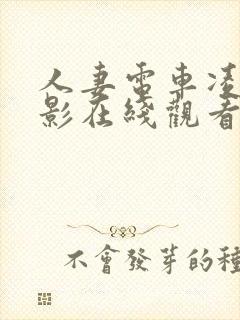 人妻電車凌
影在綫觀看
不會發芽的種